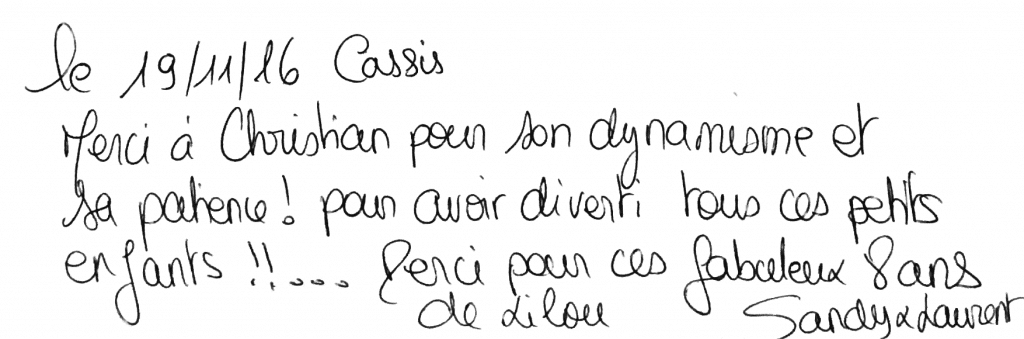 le 19/11/16 Cassis
Merci à Christian pour son dynamisme et
sa patience! pour avoir diverti tous ces petits
enfants !!.... Merci pour ces fabuleux 8 ans
de Lilou Sandy & Laurent